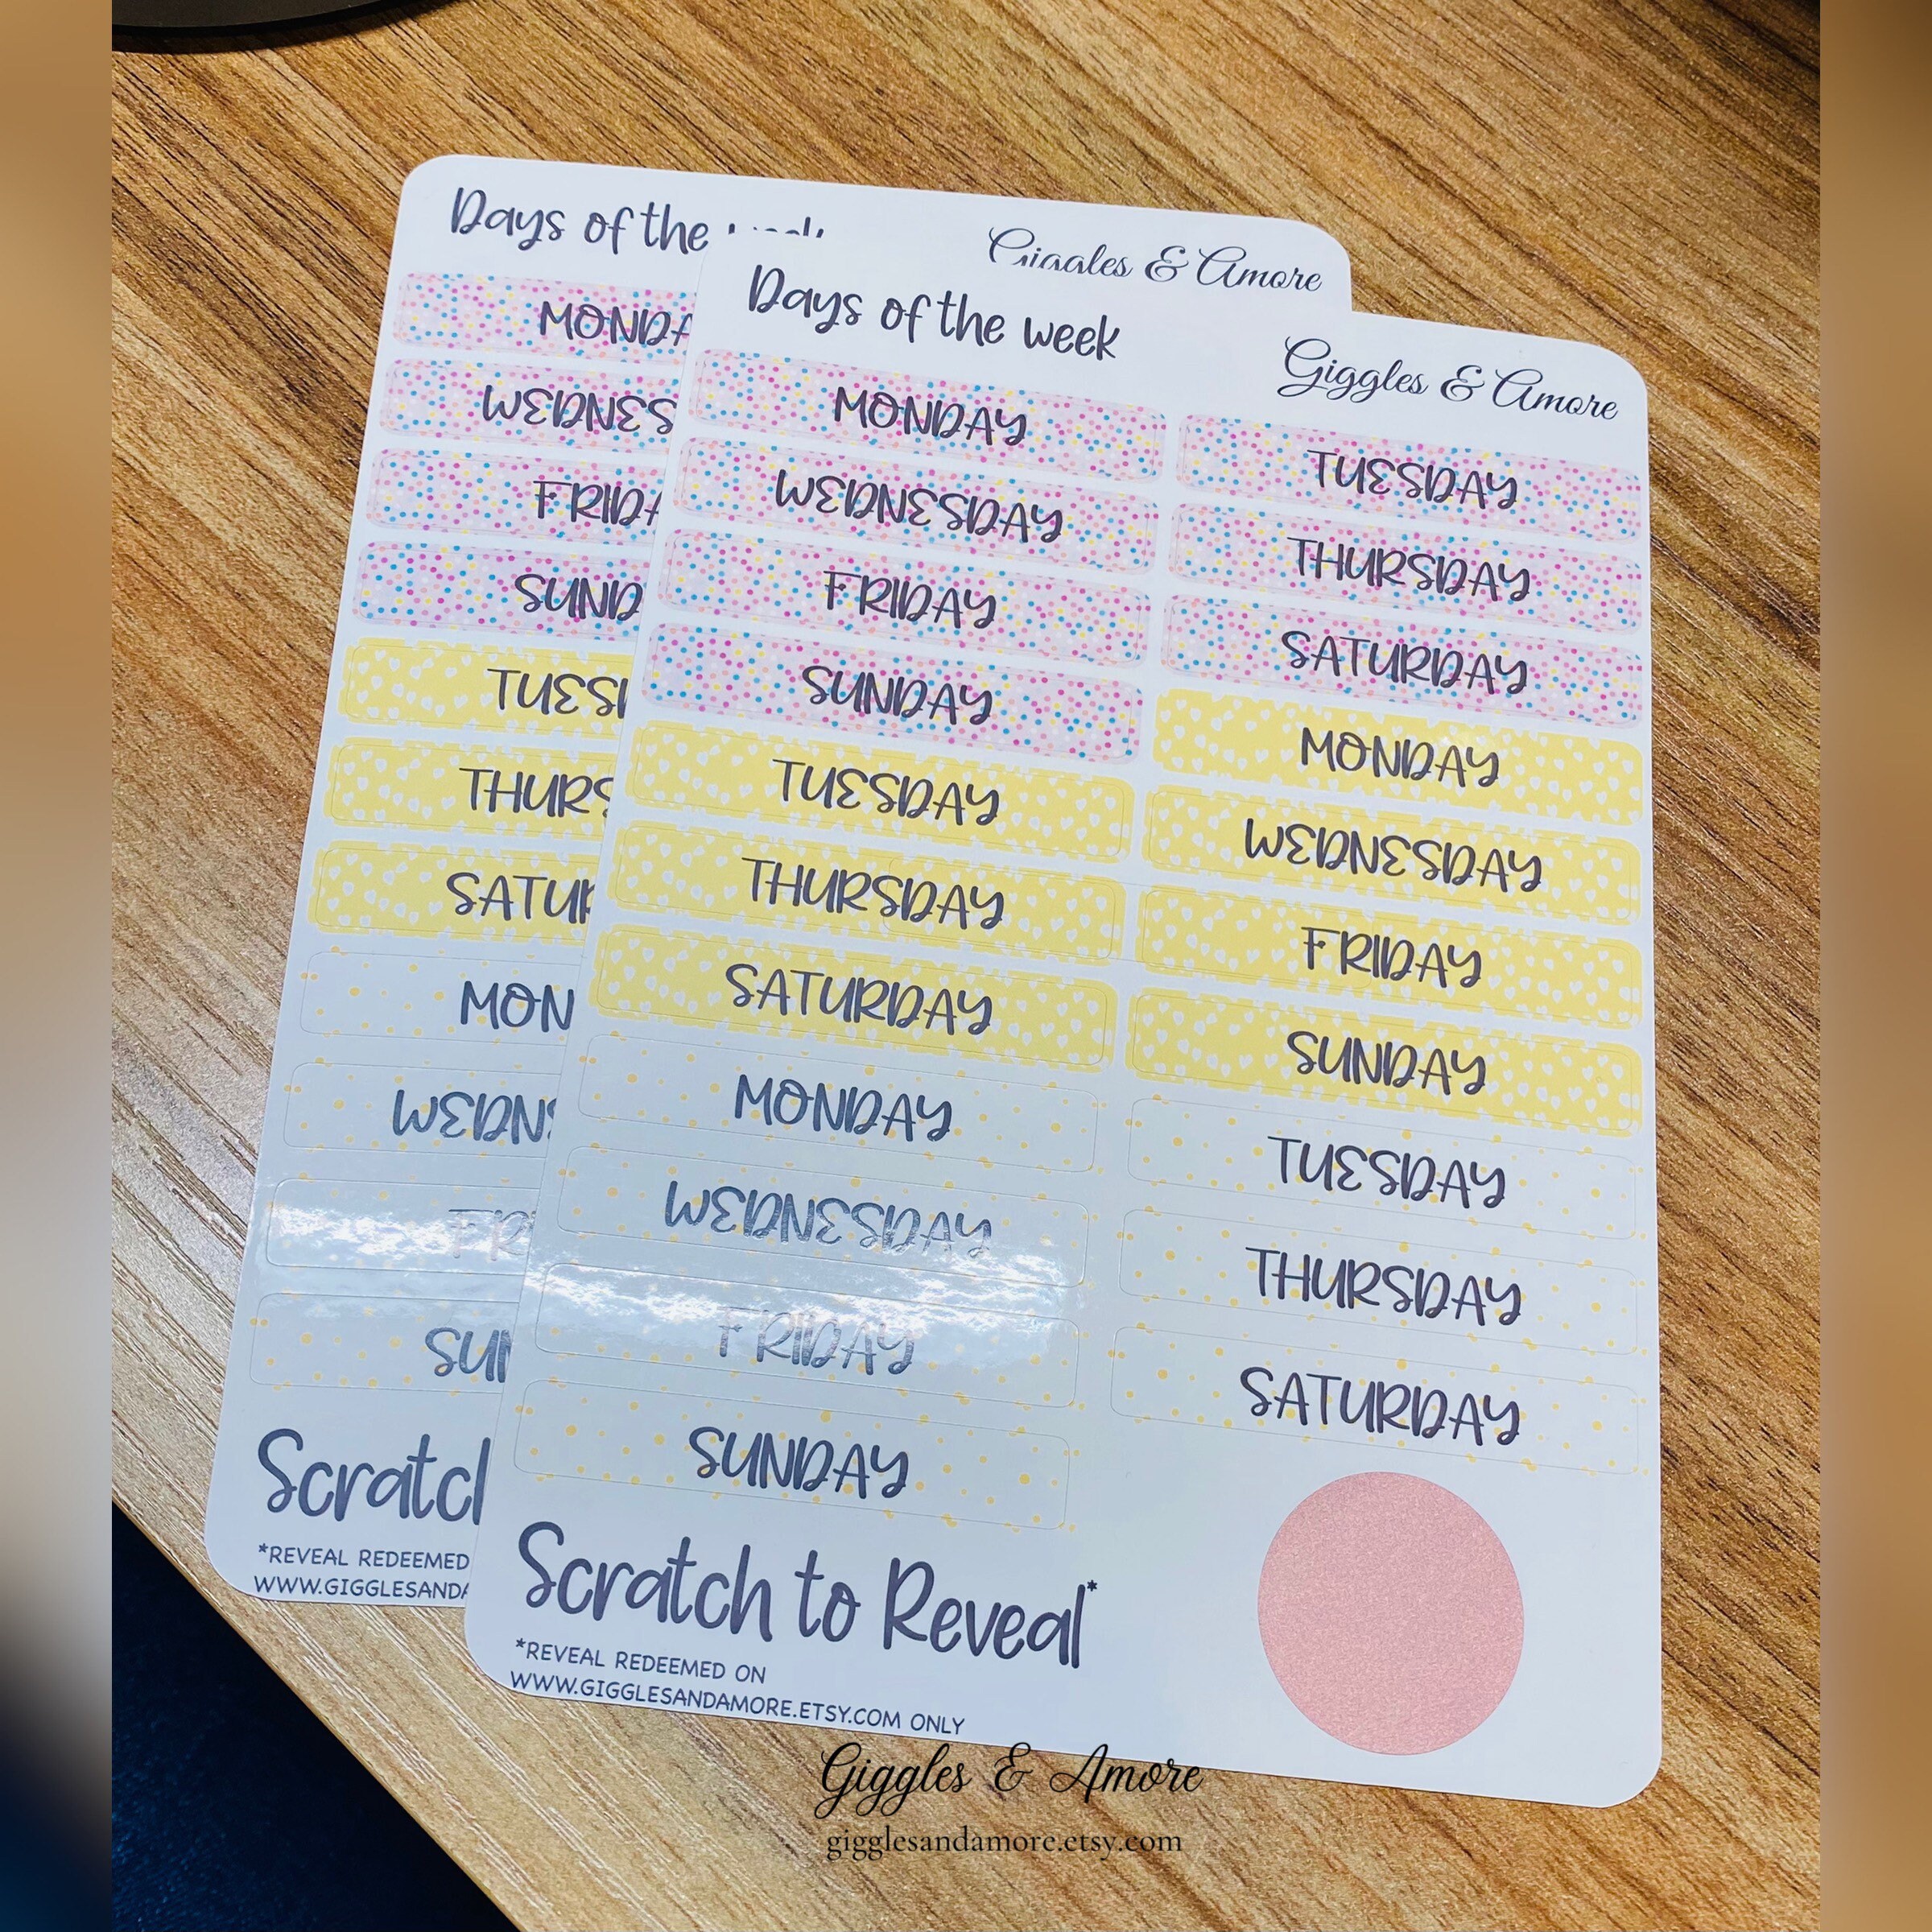 Days of the
Giggles & Amore
MONDA
WEDNES
FRIDA
SUND
TUES
THURS
SATUR
MON
WEDN
FR
SUN
Scratch
*REVEAL REDEEMED
WWW.GIGGLESANDA
Days of the week
Giggles & Amore
MONDAY TUESDAY
WEDNESDAY THURSDAY
FRIDAY SATURDAY
SUNDAY MONDAY
TUESDAY WEDNESDAY
THURSDAY FRIDAY
SATURDAY SUNDAY
MONDAY TUESDAY
WEDNESDAY THURSDAY
FRIDAY SATURDAY
SUNDAY
Scratch to Reveal*
*REVEAL REDEEMED ON
WWW.GIGGLESANDAMORE.ETSY.COM ONLY
Giggles & Amore
gigglesandamore.etsy.com